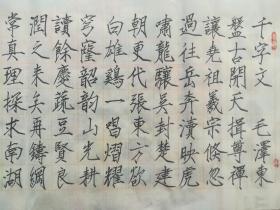 千字文 毛澤東
盤古開天揖尊禪
讓堯祖羲宗倏忽
過往岳弄瀆映虎
嘯龍驤吳封楚建
朝更代張東方欲
白雄鷄一唱熠耀
穹窿韶韵山光耕
讀餘蔬豆賢良
潤之耒矣再鑄綱
常真理探求南湖